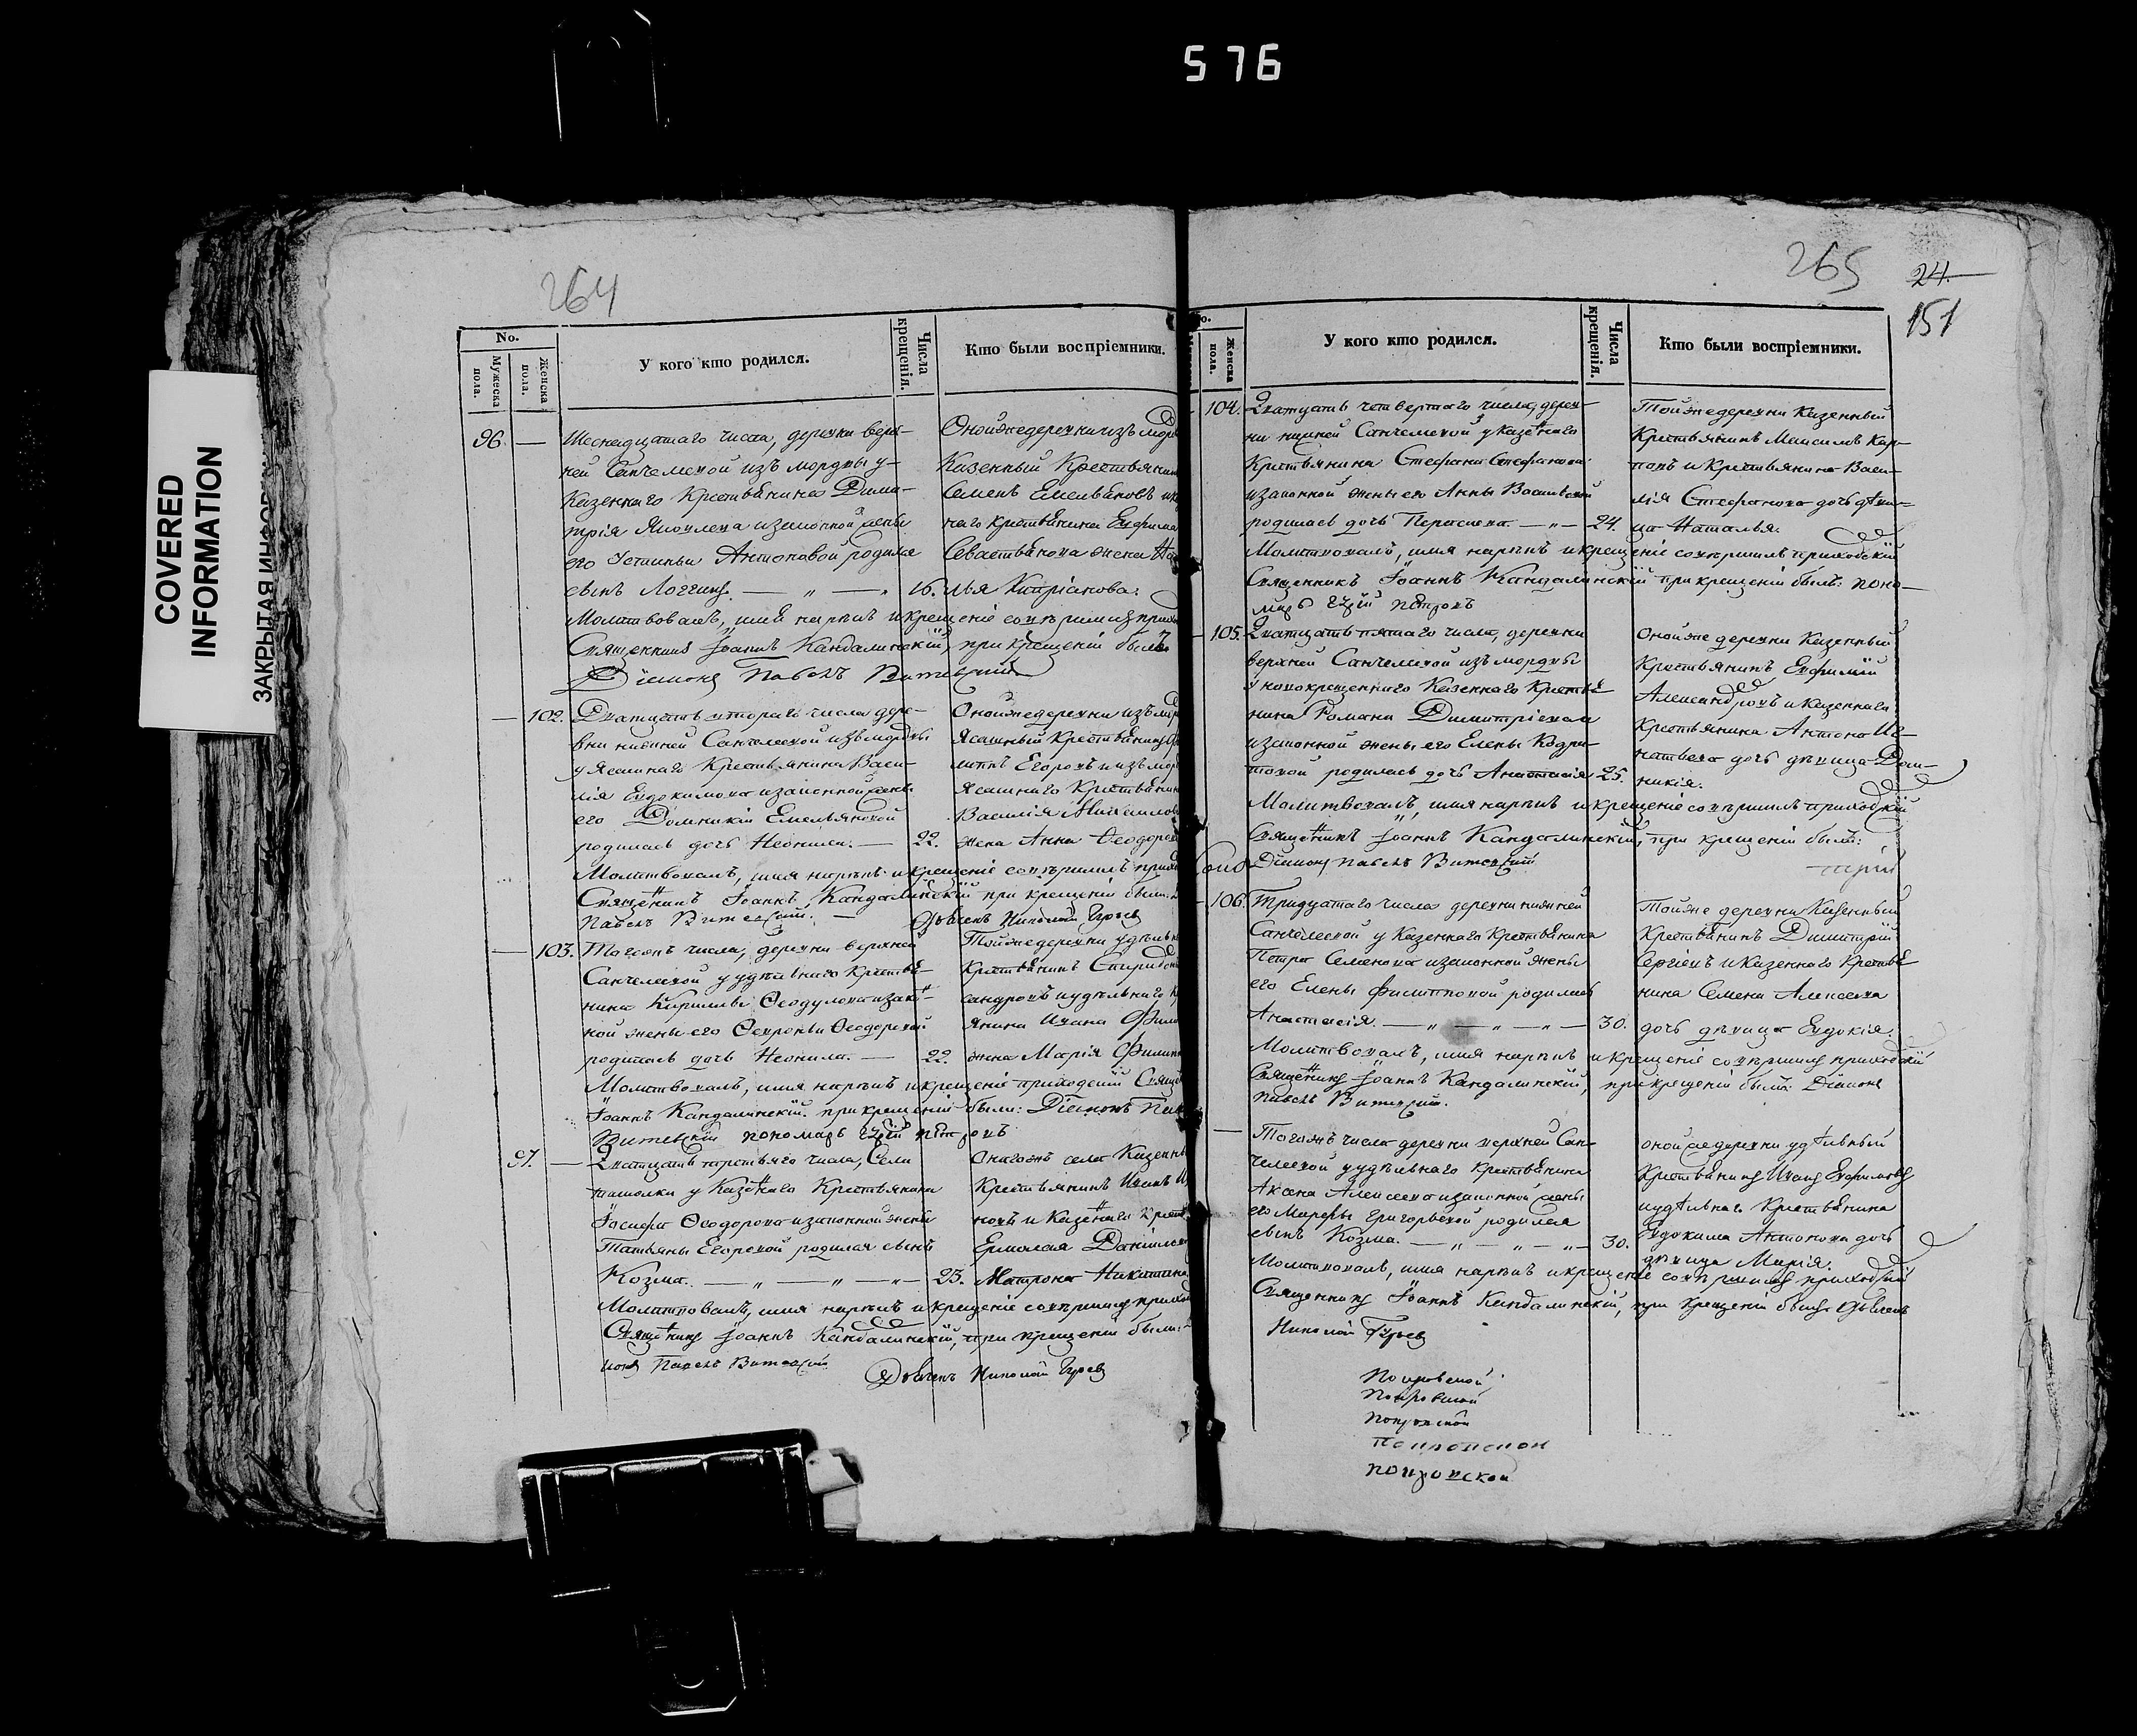 576
COVERED
INFORMATION
ЗАКРЫТАЯ
264
No.
Мужеска пола.
Женска пола.
У кого кто родился.
Числа крещенія.
Кто были воспріемники.
96. — Шеснадцатаго числа, деревни верх-
ней Санчелеевой изъ мордвы у
Казеннаго Крестьянина Дими-
трія Яковлева и законной жены
его Устиньи Антоновой родился
сынъ Логгинъ. — „ — „ 16.
Онойже деревни изъ
Казенный Крестьянин
Семенъ Емельяновъ и
наго крестьянина Евфима
Севастьянова жена
лья Кипріанова.
Молитвовалъ, имя нарѣкъ и крещеніе совершилъ
Священникъ Іоаннъ Кандалинскій, при крещеніи былъ
Діаконъ Павелъ Витевскій
— 102. Дватцать втораго числа дере-
вни нижней Санчелеевой изъ мордвы
у Ясашнаго Крестьянина Васи-
лія Евдокимова и законной жены
его Домникіи Емельяновой
родилась дочь Неонила. — 22.
Онойже деревни изъ
Ясашный Крестьянинъ
Егоровъ и изъ
Ясашнаго Крестьянин
Василія
жена Анна Ѳеодоров
Молитвовалъ, имя нарѣкъ и крещеніе совершилъ
Священникъ Іоаннъ Кандалинскій при крещеніи были
Павелъ Витевскій. — Дьячекъ Николай
— 103. Тогожъ числа, деревни верхней
Санчелеевой у удѣльнаго Крестья-
нина Кирилы Ѳеодулова и закон-
ной жены его Ѳевроньи Ѳеодоровой
родилась дочь Неонила. — 22.
Тойже деревни удѣль
Крестьянинъ Спиридонъ
сандровъ и удѣльнаго
янина Ивана
жена Марія
Молитвовалъ, имя нарѣкъ и крещеніе приходскій
Іоаннъ Кандалинскій. при крещеніи были: Діаконъ
Витевскій пономарь Петровъ
97. — Дватцать третьяго числа, Села
Ташолки у Казеннаго Крестьянина
Іосифа Ѳеодорова и законной жены
Татьяны Егоровой родился сынъ
Козма. — „ — „ — „ — 23.
Онагожъ села Казенны
Крестьянинъ Иванъ
новъ и Казеннаго
Ермолая Данилова
Матрона Никитина
Молитвовалъ, имя нарѣкъ и крещеніе совершилъ
Священникъ Іоаннъ Кандалинскій, при крещеніи были:
Павелъ Витевскій Дьячекъ Николай
265
24.
151
Женска пола.
У кого кто родился.
Числа крещенія.
Кто были воспріемники.
104. Дватцать четвертаго числа, дерев-
ни нижней Санчелеевой у Казеннаго
Крестьянина Стефана Стефанова
и законной жены его Анны Васильевой
родилась дочь Параскева — „ — 24.
Тойже деревни Казенный
Крестьянинъ Максимъ Кар-
повъ и Крестьянина Васи-
лія Стефанова дочь дѣви-
ца Наталья.
Молитвовалъ, имя нарѣкъ и крещеніе совершилъ приходскій
Священникъ Іоаннъ Кандалинскій при крещеніи былъ: поно-
марь Петровъ
105. Дватцать пятаго числа, деревни
верхней Санчелеевой изъ мордвы
у новокрещеннаго Казеннаго Крестья-
нина Романа Димитріева
и законной жены его Елены
родилась дочь Анастасія 25.
Онойже деревни Казенный
Крестьянинъ Евфимій
Александровъ и Казеннаго
Крестьянина Антона Иг-
натьева дочь дѣвица Дом-
никія.
Молитвовалъ, имя нарѣкъ и крещеніе совершилъ приходскій
Священникъ Іоаннъ Кандалинскій, при крещеніи былъ:
Діаконъ Павелъ Витевскій
106. Тридцатаго числа деревни нижней
Санчелеевой у Казеннаго Крестьянина
Петра Семенова и законной жены
его Елены Филипповой родилась
Анастасія. — „ — „ — „ — 30.
Тойже деревни Казенный
Крестьянинъ Димитрій
Сергіевъ и Казеннаго Крестья
нина Семена Алексеева
дочь дѣвица Евдокія.
Молитвовалъ, имя нарѣкъ и крещеніе совершилъ приходскій
Священникъ Іоаннъ Кандалинскій, при крещеніи былъ: Діаконъ
Павелъ Витевскій.
— Тогожъ числа деревни верхней Сан-
челеевой у удѣльнаго Крестьянина
Алексеева и законной жены
его Марфы Григорьевой родился
сынъ Козма. — „ — „ — „ — 30.
оной же деревни удѣльный
Крестьянинъ Иванъ Евфимовъ
и удѣльнаго Крестьянина
Евдокима Антонова дочь
дѣвица Марія.
Молитвовалъ, имя нарѣкъ и крещеніе совершилъ приходскій
Священникъ Іоаннъ Кандалинскій, при крещеніи былъ Дьячекъ
Николай
Покровской
Покровской
Покровской
Покровской
покровской